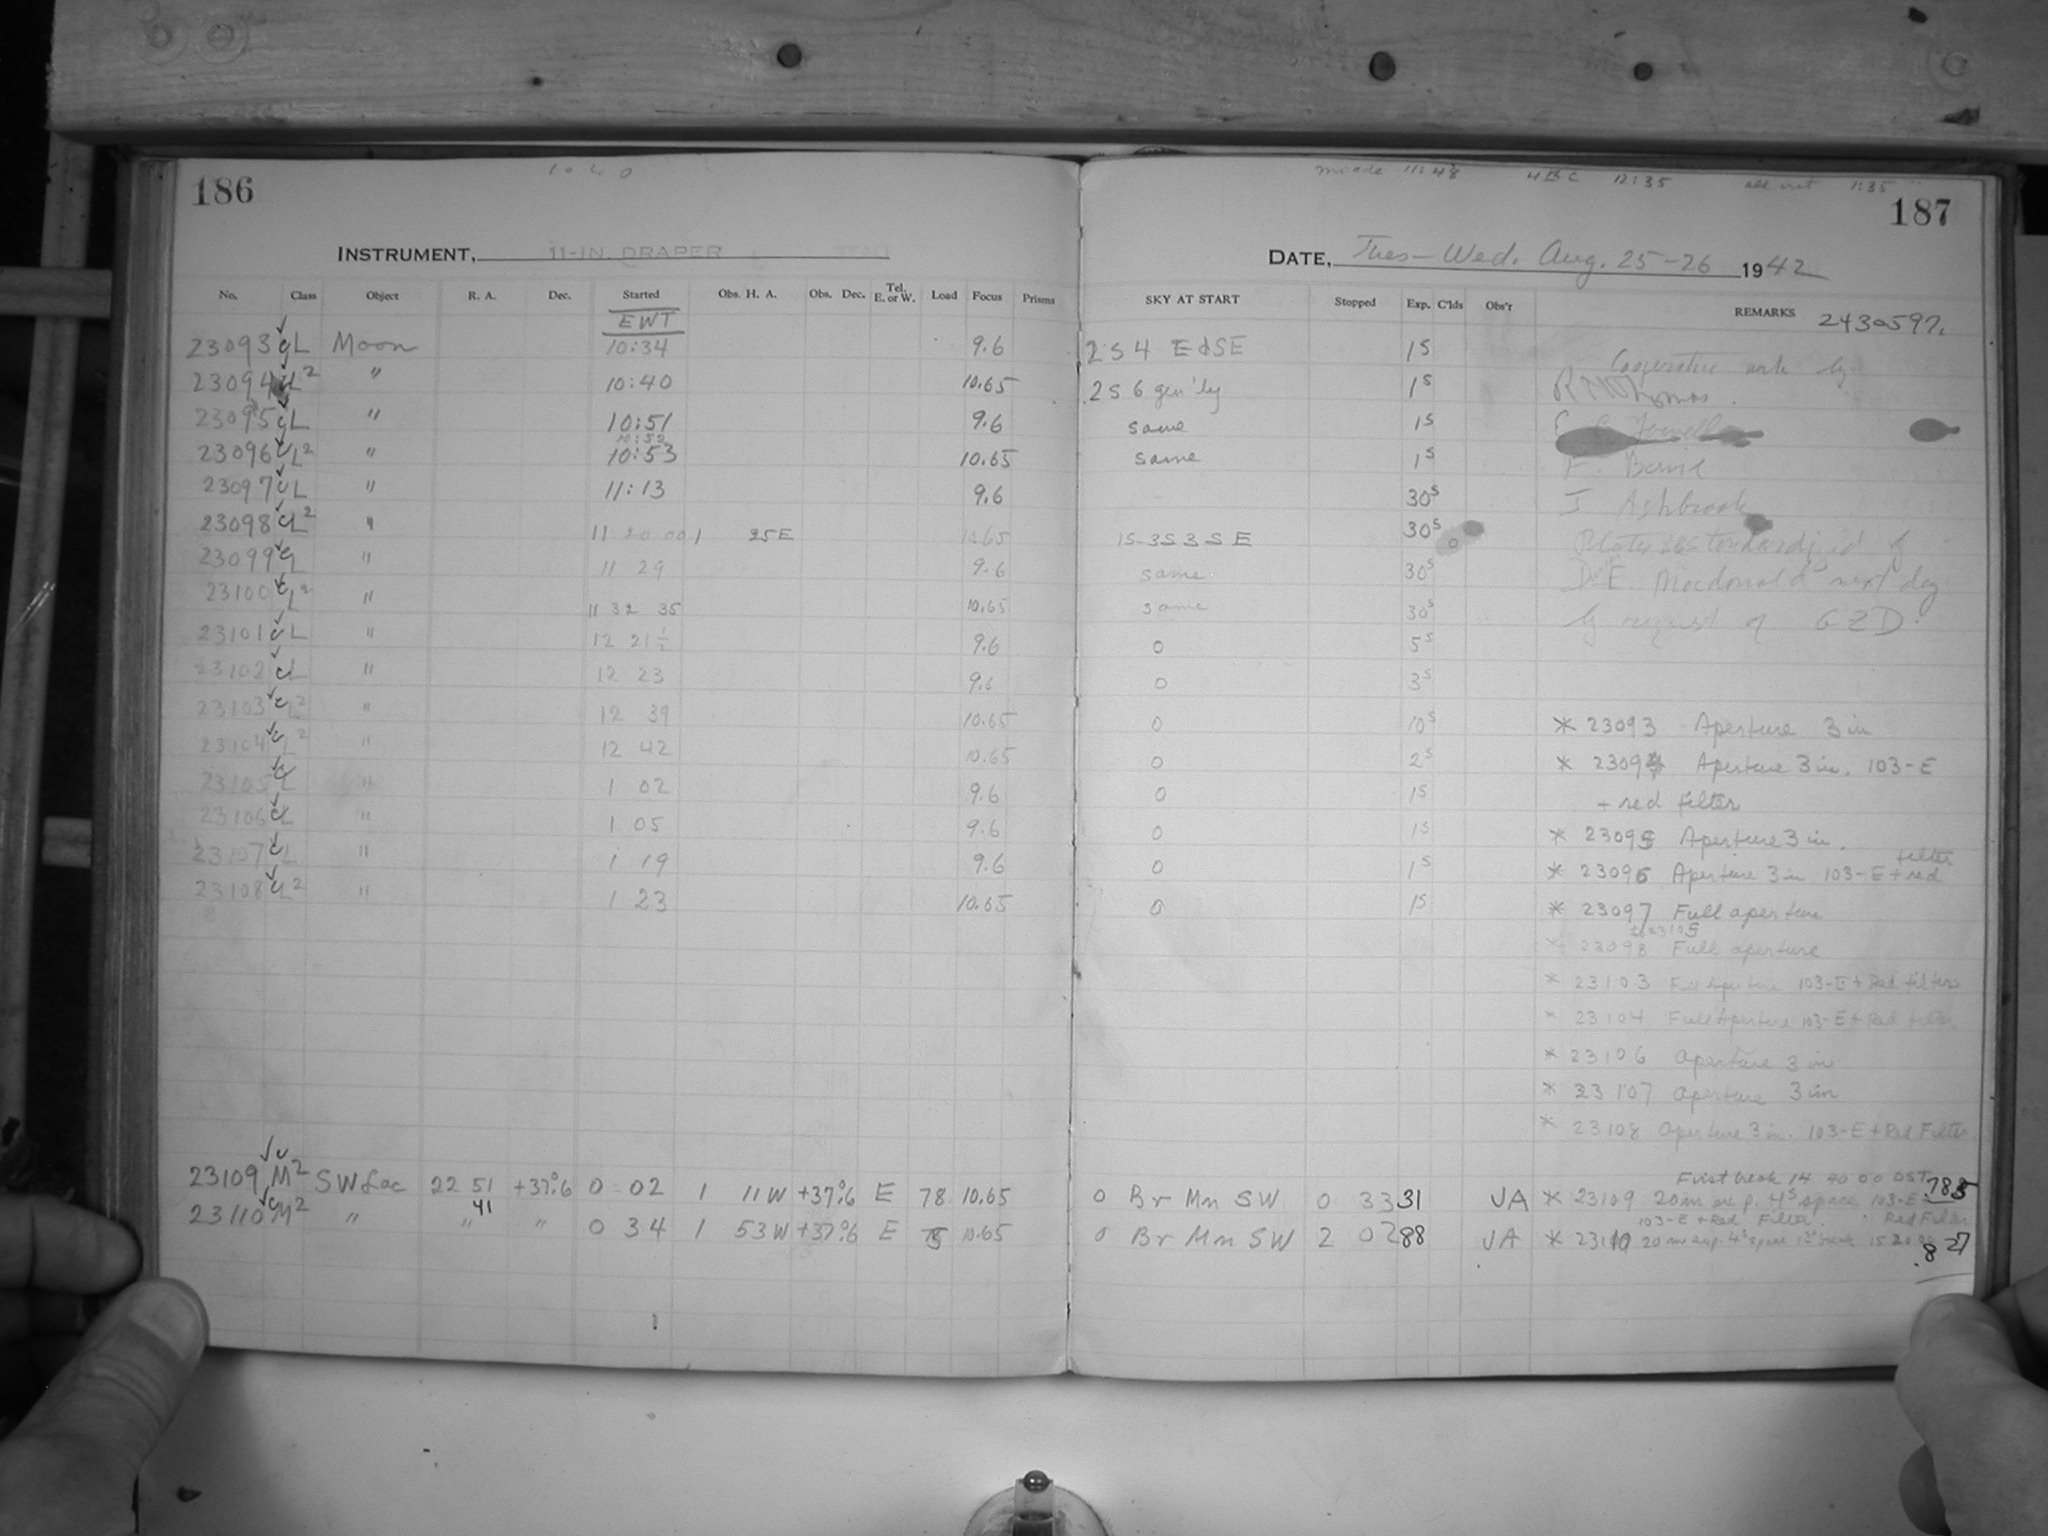 186
INSTRUMENT, 11-IN. DRAPER
No. Class Object R. A. Dec. Started Obs. H. A. Obs. Dec. Tel. E. or W. Load Focus Prisms
EWT
23093 L Moon 10:34 9.6
23094 L² " 10:40 10.65
23095 L " 10:51 9.6
10:52
23096 L² " 10:53 10.65
23097 L " 11:13 9.6
23098 L² " 11 20 00 1 25E 10.65
23099 " 11 29 9.6
23100 L² " 11 32 35 10.65
23101 L " 12 21½ 9.6
23102 L " 12 23 9.6
23103 L² " 12 39 10.65
23104 L² " 12 42 10.65
23105 L " 1 02 9.6
23106 L " 1 05 9.6
23107 L " 1 19 9.6
23108 L² " 1 23 10.65
23109 M² SW Lac 22 51 +37°.6 0 02 1 11W +37°.6 E 78 10.65
41
23110 M² " " " 0 34 1 53W +37°.6 E 10.65
11:48 12:35 1:35
187
DATE, Tues-Wed. Aug. 25-26 1942
SKY AT START Stopped Exp. C'lds Obs'r REMARKS 2430597.
2 S 4 E & SE 1s Cooperative work by
2 S 6 gen'ly 1s R N Thomas.
same 1s
same 1s
30s J Ashbrook
1S-3S 3 S E 30s Plates standardized by
same 30s D. E. Macdonald next day
same 30s by request of GZD.
0 5s
0 3s
0 10s * 23093 Aperture 3 in
0 2s * 23094 Aperture 3 in. 103-E
0 1s + red filter
0 1s * 23095 Aperture 3 in.
0 1s * 23096 Aperture 3 in 103-E + red filter
0 1s * 23097 Full aperture
to 23105
* 23098 Full aperture
* 23103 Full Aperture 103-E + Red filter
* 23104 Full Aperture 103-E + Red filter
* 23106 aperture 3 in
* 23107 aperture 3 in
* 23108 aperture 3 in. 103-E + Red Filter
First break 14 40 00 DST
0 Br Mn SW 0 33 31 JA * 23109 20m exp. 4s space 103-E
103-E + Red Filter Red Filter
0 Br Mn SW 2 02 88 JA * 23110 20m exp. 4s space 1st break 15 20
.827